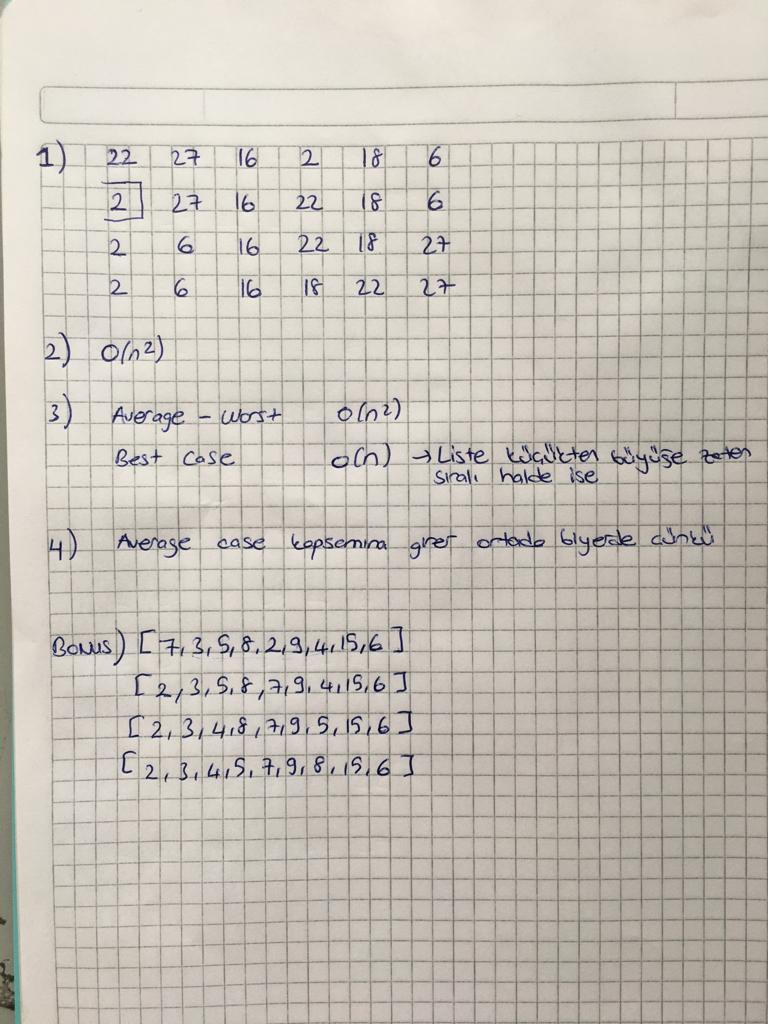 1) 22 27 16 2 18 6
2 27 16 22 18 6
2 6 16 22 18 27
2 6 16 18 22 27
2) O(n²)
3) Average - Worst O(n²)
Best case O(n) → Liste küçükten büyüğe zaten
sıralı halde ise
4) Average case kapsamına girer ortada biyerde çünkü
BONUS) [7,3,5,8,2,9,4,15,6]
[2,3,5,8,7,9,4,15,6]
[2,3,4,8,7,9,5,15,6]
[2,3,4,5,7,9,8,15,6]